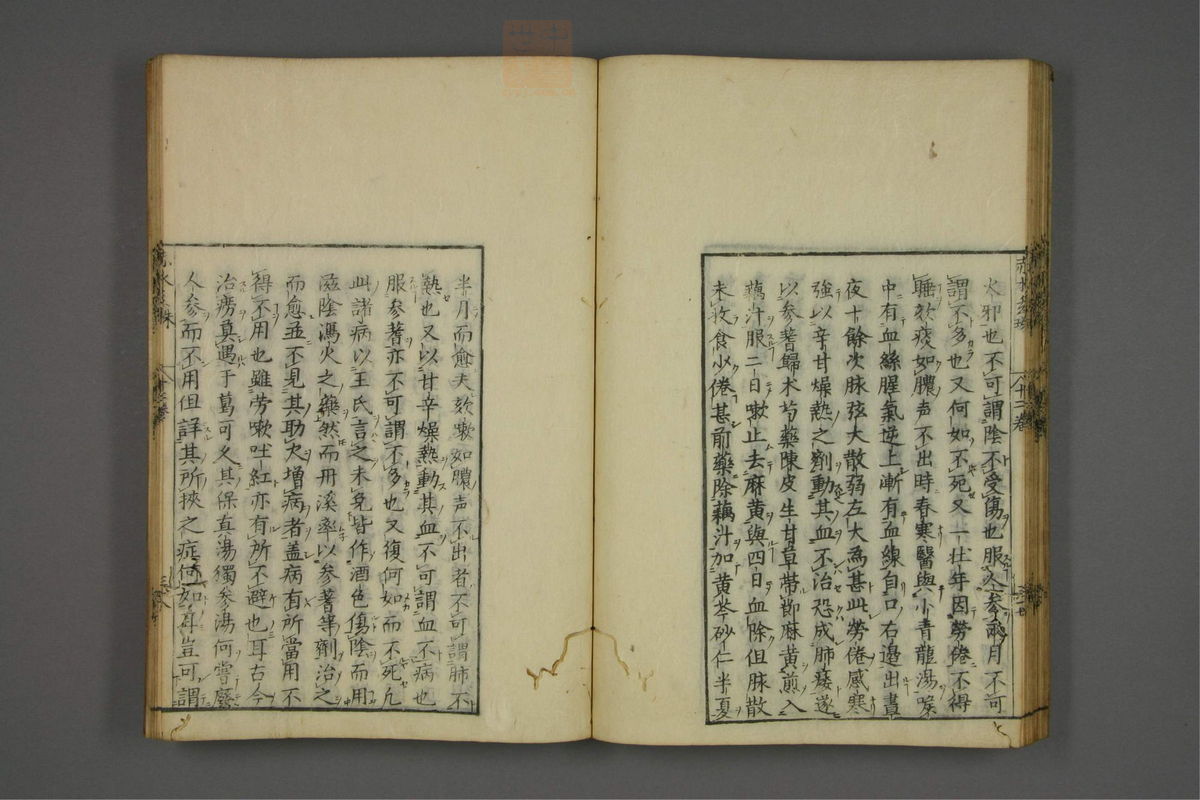 火邪也不可謂陰不受傷也服人參兩月不可
謂不多也又何如不死又一壮年因勞倦不得
睡欬痰如膿声不出時春寒醫與小青龍湯喉
中有血絲腥氣逆上漸有血線自口右邉出晝
夜十餘次脉弦大散弱左大為甚此勞倦感寒
強以辛甘燥熱之劑動其血不治恐成肺痿遂
以參蓍歸术芍藥陳皮生甘草帯節麻黄煎入
藕汁服二日嗽止去麻黄與四日血除但脉散
未收食少倦甚前藥除藕汁加黄芩砂仁半夏
半月而愈夫欬嗽如膿声不出者不可謂肺不
熱也又以甘辛燥熱動其血不可謂血不病也
服參蓍亦不可謂不多也又復何如而不死凢
此諸病以王氏言之未免皆作酒色傷陰而用
滋陰瀉火之藥然而丹溪率以參蓍等劑治之
而愈並不見其助火増病者盖病有所當用不
得不用也雖劳嗽吐紅亦有所不避也耳古今
治癆莫過于葛可久其保真湯獨參湯何嘗廢
人參而不用但詳其所挾之症何如耳豈可謂
赤水玄珠
十二卷